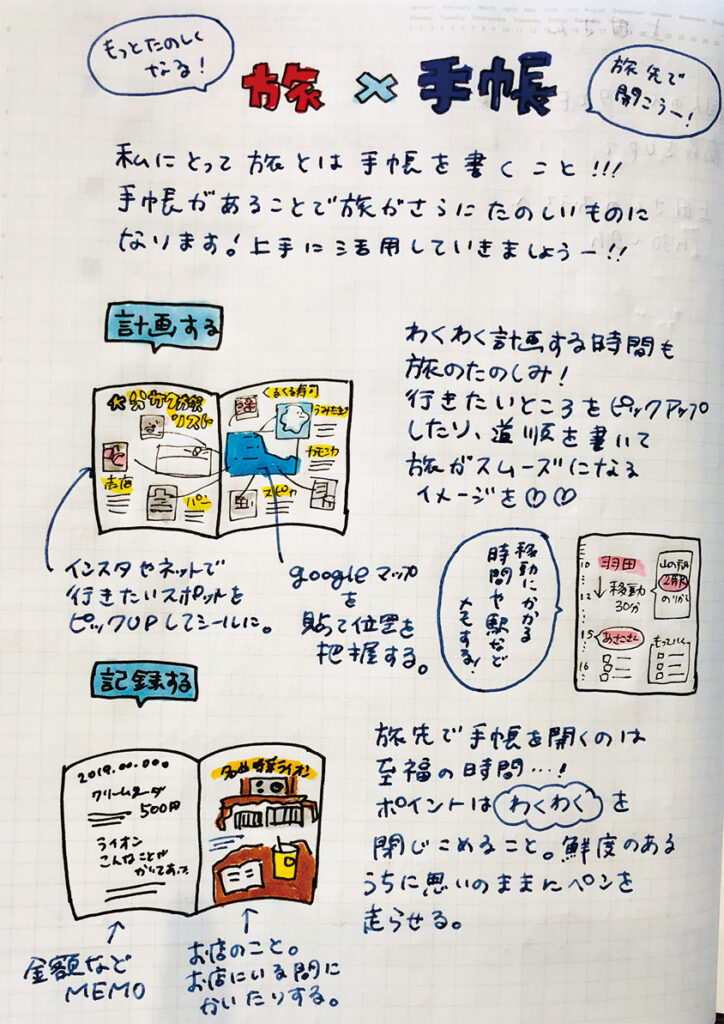 もっとたのしく
なる!
旅×手帳
旅先で
開こうー!
私にとって旅とは手帳を書くこと!!!
手帳があることで旅がさらにたのしいものに
なります!上手に活用していきましょうー!!
計画する
わくわく計画する時間も
旅のたのしみ!
行きたいところをピックアップ
したり、道順を書いて
旅がスムーズになる
イメージを♡♡
リスト
お店
バー
くるくる寿司
うみたまご
カモシカ
スピカ
インスタやネットで
行きたいスポットを
ピックUPしてシールに。
googleマップ
を
貼って位置を
把握する。
移動にかかる
時間や駅など
メモする!
10 羽田
↓移動
30分
12
15
16
2番
のりば
もっていく
記録する
2019.00.000
クリームソーダ
500円
ライオン
こんなことが
かいてあった
名曲喫茶ライオン
旅先で手帳を開くのは
至福の時間…!
ポイントはわくわくを
閉じこめること。鮮度のある
うちに思いのままにペンを
走らせる。
金額など
MEMO
お店のこと。
お店にいる間に
かいたりする。